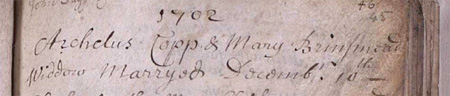 46
1702
45
Archelus Copp & Mary Brinsmead
Widdow Marryed Decemb.^r 10^th